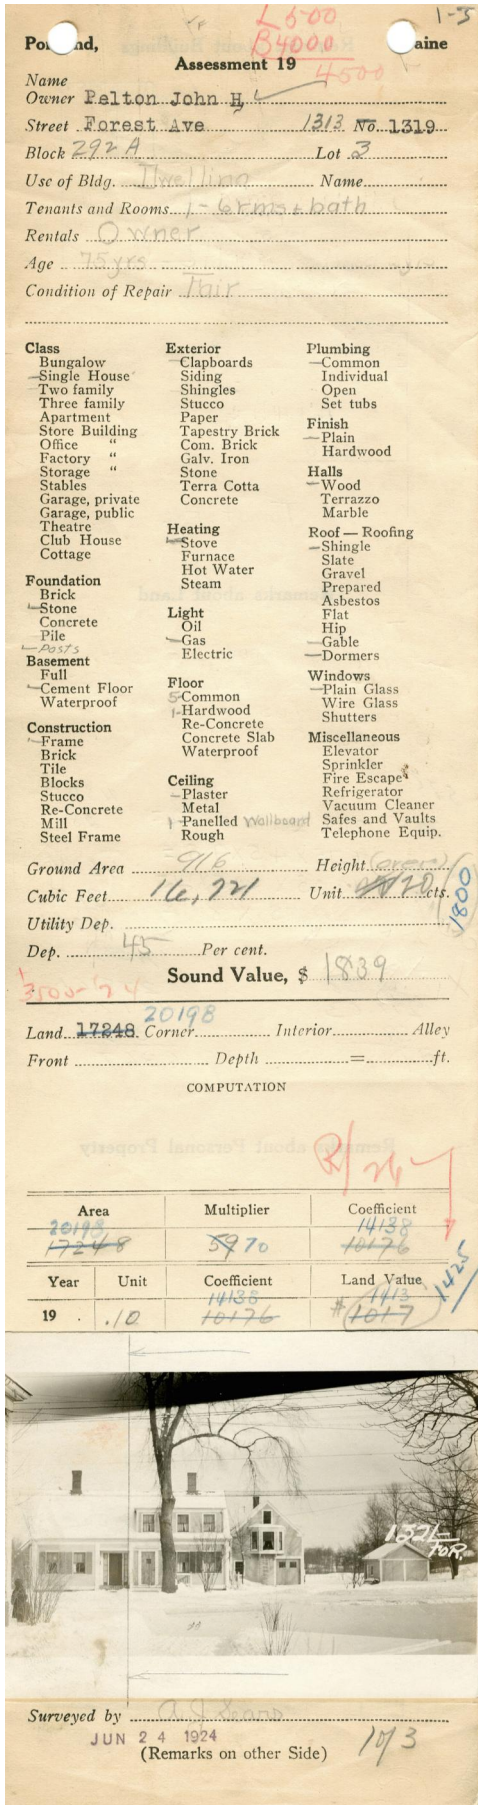 L 500
B 4000
4500
1-3
Portland, Maine
Assessment 19
Name
Owner Pelton John H
Street Forest Ave 1313 No. 1319
Block 292 A Lot 3
Use of Bldg. Dwelling Name
Tenants and Rooms 1 - 6 rms + bath
Rentals Owner
Age 75 yrs
Condition of Repair Fair
Class
Bungalow
Single House
Two family
Three family
Apartment
Store Building
Office "
Factory "
Storage "
Stables
Garage, private
Garage, public
Theatre
Club House
Cottage
Foundation
Brick
Stone
Concrete
Pile
Posts
Basement
Full
Cement Floor
Waterproof
Construction
Frame
Brick
Tile
Blocks
Stucco
Re-Concrete
Mill
Steel Frame
Exterior
Clapboards
Siding
Shingles
Stucco
Paper
Tapestry Brick
Com. Brick
Galv. Iron
Stone
Terra Cotta
Concrete
Heating
Stove
Furnace
Hot Water
Steam
Light
Oil
Gas
Electric
Floor
5 Common
1 - Hardwood
Re-Concrete
Concrete Slab
Waterproof
Ceiling
Plaster
Metal
1 - Panelled Wallboard
Rough
Plumbing
Common
Individual
Open
Set tubs
Finish
Plain
Hardwood
Halls
Wood
Terrazzo
Marble
Roof — Roofing
Shingle
Slate
Gravel
Prepared
Asbestos
Flat
Hip
Gable
Dormers
Windows
Plain Glass
Wire Glass
Shutters
Miscellaneous
Elevator
Sprinkler
Fire Escape
Refrigerator
Vacuum Cleaner
Safes and Vaults
Telephone Equip.
Ground Area 916 Height (over)
Cubic Feet 16,721 Unit 20 cts.
1800
Utility Dep.
Dep. 45 Per cent.
Sound Value, $ 1839
3500 - '24
20198
Land 17248 Corner Interior Alley
Front Depth = ft.
COMPUTATION
R/26
Area Multiplier Coefficient
20198 14138
17248 59 70 10176
Year Unit Coefficient Land Value
14138 1413
19 .10 10176 # 1017
1425
1321
FOR.
Surveyed by A J Sears
JUN 24 1924
(Remarks on other Side)